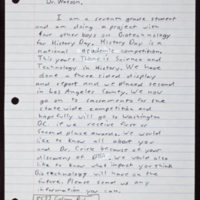 Dr. Watson,
I am a seventh grade student
and am doing a project with
four other boys on Biotechnology
for History Day. History Day is a
national Academic competition.
This years Theme is Science and
Technology in History. We have
done a three sided display
and report and we placed second
in Los Angeles County. We now
go on to sacramento for the
state wide competition and
hopefully will go to Washington
DC. if we receive first or
Second place awards. We would
like to know all about you
and Dr. Crick because of your
discovery of DNA. We would also
like to know what impact you think
Biotechnology will have on the
future. Please send us any
information you can.